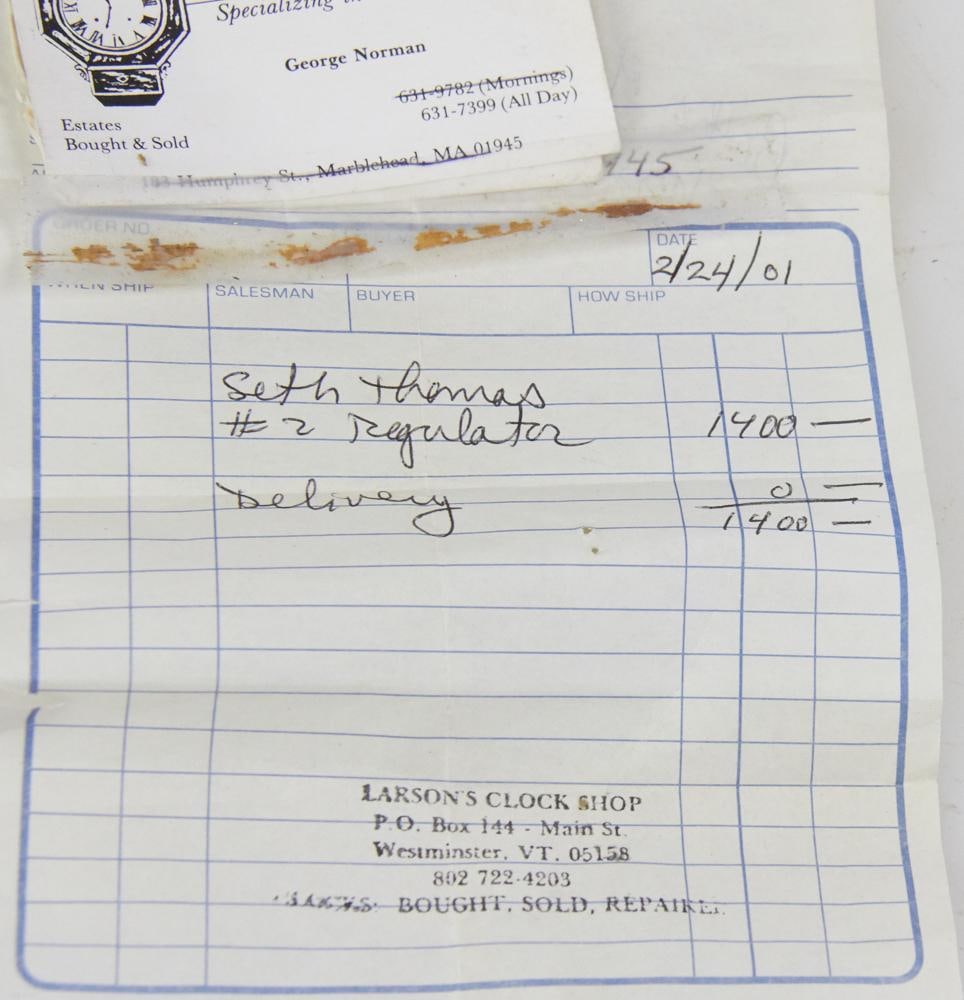 Specializing
George Norman
631-9782 (Mornings)
631-7399 (All Day)
Estates
Bought & Sold
Humphrey St., Marblehead, MA 01945
945
ORDER NO
DATE
2/24/01
WHEN SHIP
SALESMAN
BUYER
HOW SHIP
Seth Thomas
# 2 Regulator 1400 —
Delivery 0 —
1400 —
LARSON'S CLOCK SHOP
P.O. Box 144 - Main St.
Westminster, VT. 05158
802 722-4203
BOUGHT, SOLD, REPAIRED